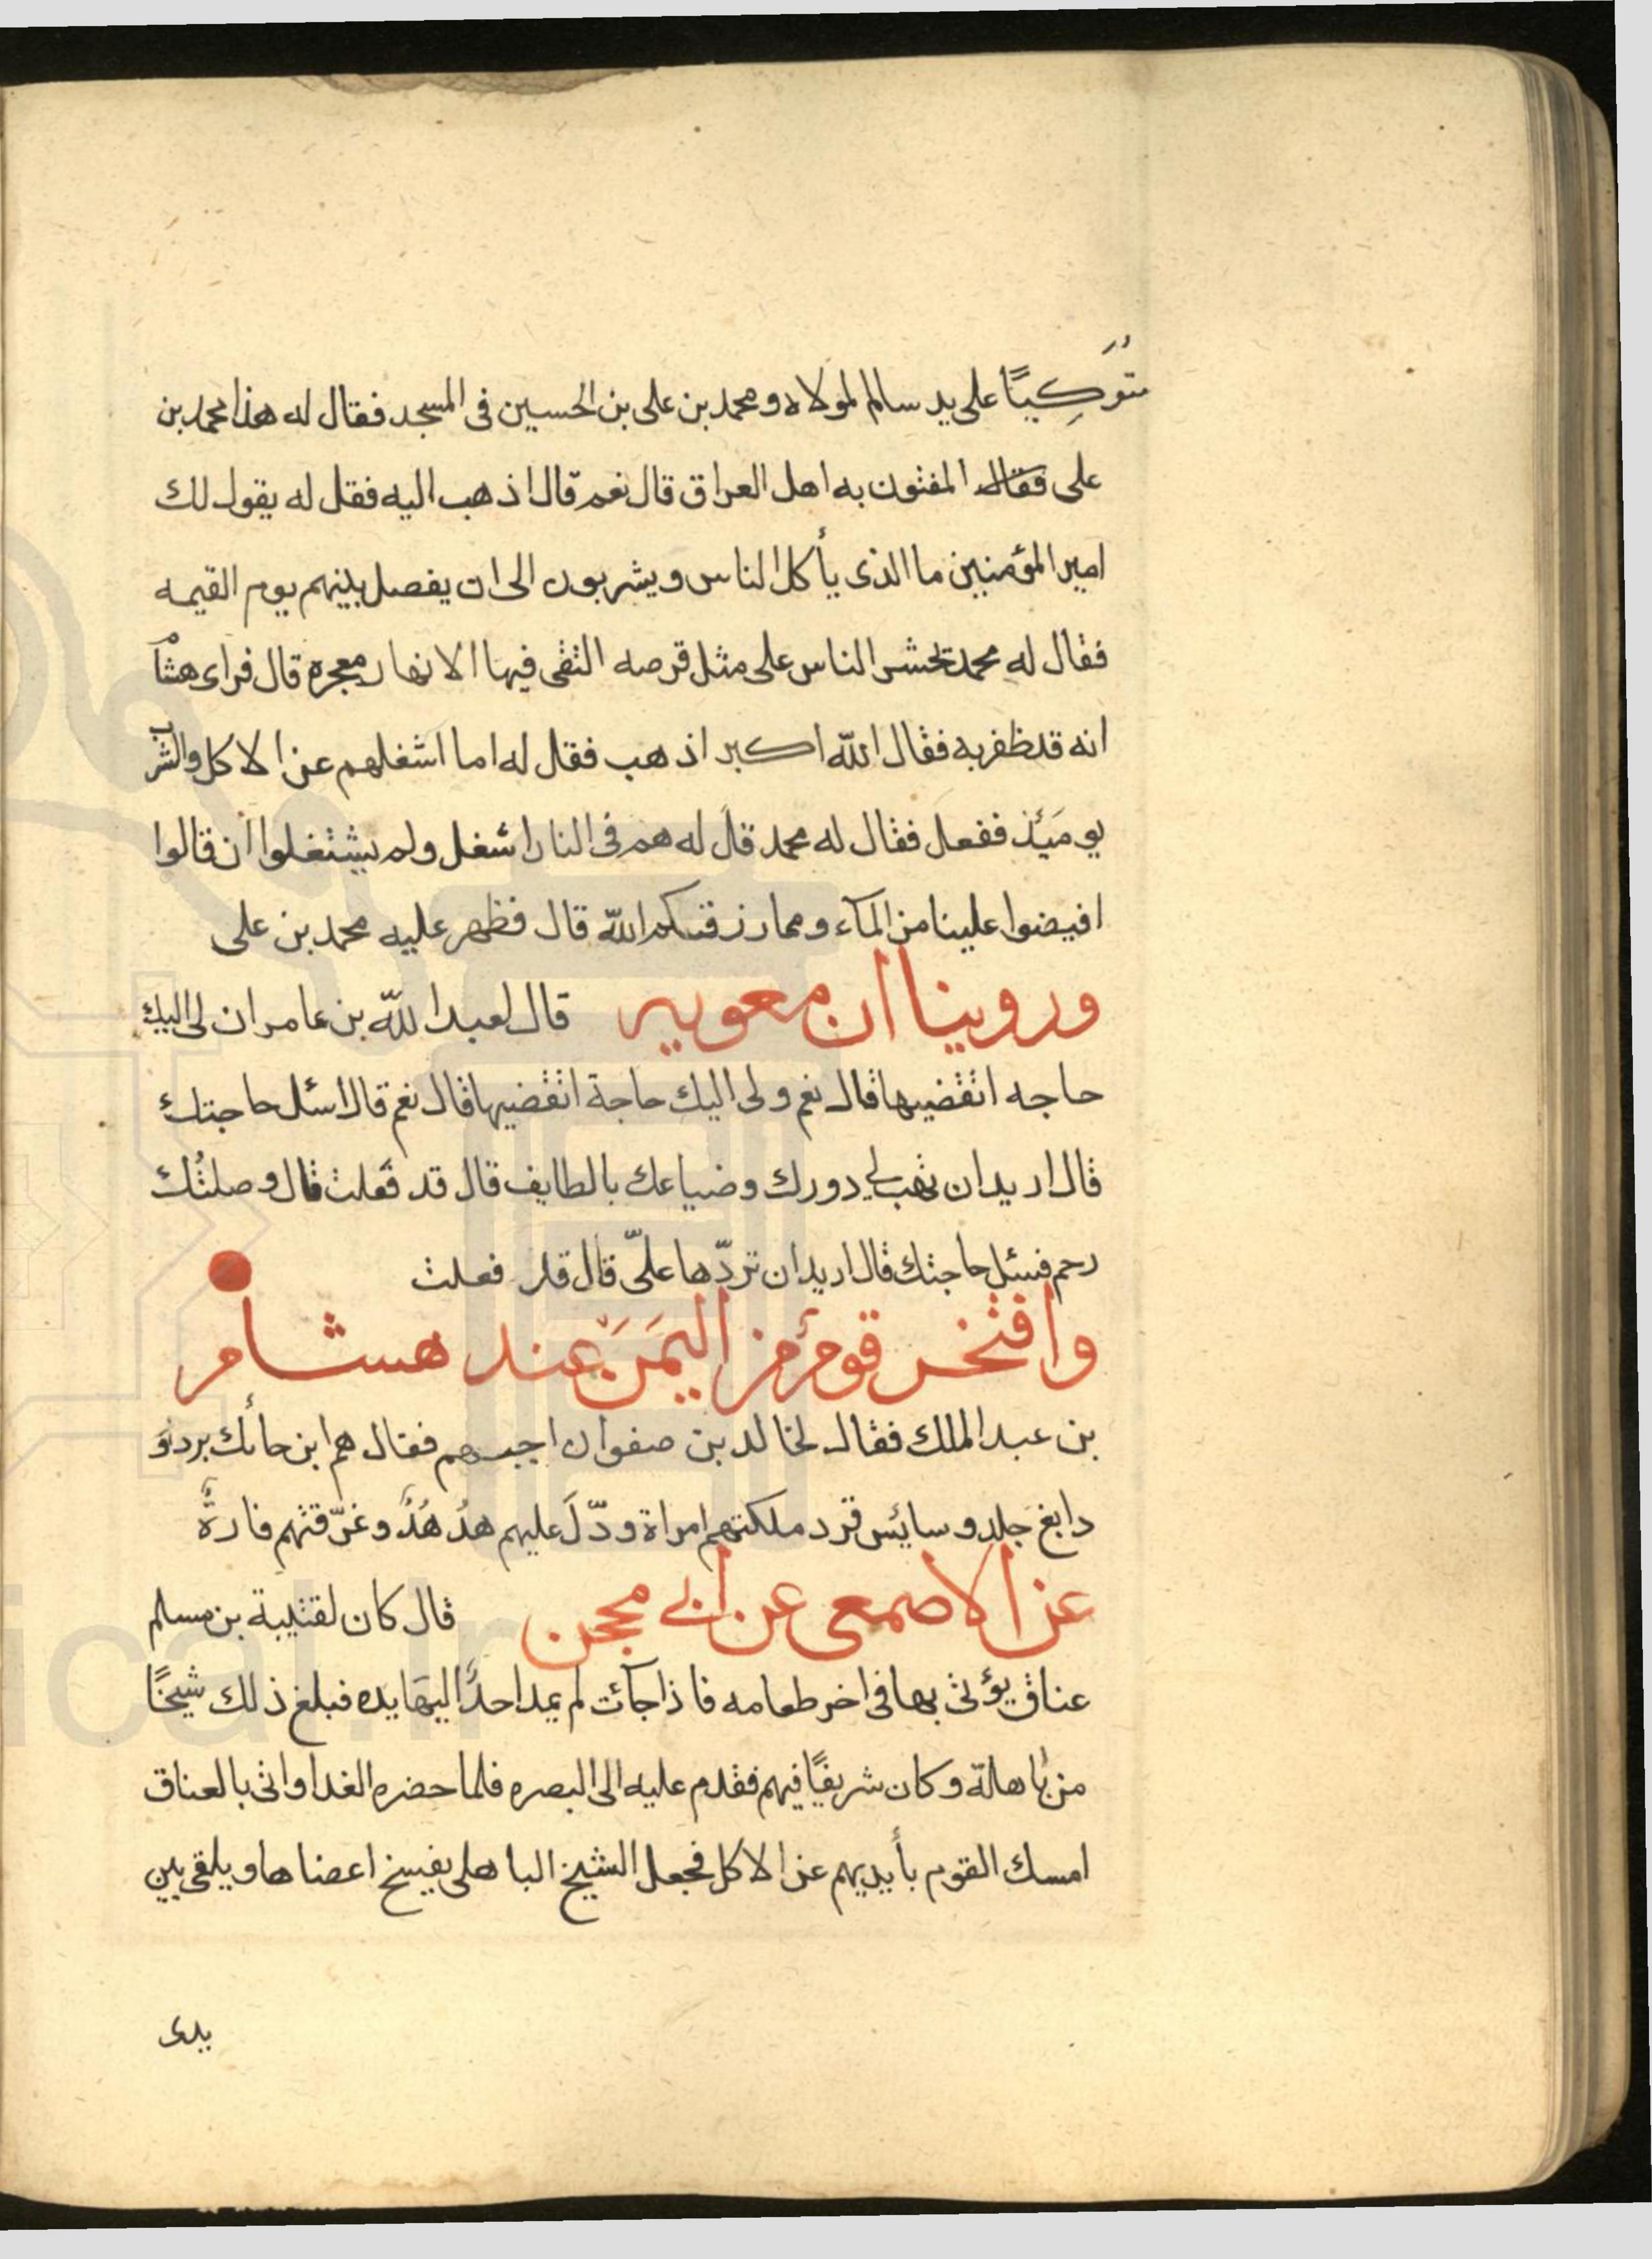 متوكيًا على يد سالم لمولاه ومحمد بن على بن الحسين فى المسجد فقال له هذا محمد بن
على فقال المفتون به اهل العراق قال نعم قال اذهب اليه فقل له يقول لك
امير المؤمنين ما الذى يأكل الناس ويشربون الى ان يفصل بينهم يوم القيمه
فقال له محمد تحشر الناس على مثل قرصه التقى فيها الانهار معجره قال فراى هشام
انه قد ظفر به فقال الله اكبر اذهب فقل له اما اشغلهم عن الاكل والشرب
يوميَئذ ففعل فقال له محمد قل له هم فى النار اشغل ولم يشتغلوا أن قالوا
افيضوا علينا من المآء ومما رزقكم الله قال فظهر عليه محمد بن على
وروينا ان معويه قال لعبد الله بن عامر ان لى اليك
حاجه اتقضيها قال نعم ولى اليك حاجة اتقضيها قال نعم قال اسئل حاجتك
قال اريد ان تهب لي دورك وضياعك بالطايف قال قد فعلت قال وصلتُك
رحم فسئل حاجتك قال اريد ان تردّها علىّ قال قد فعلت
وافتخر قومٌ من اليَمَن عند هشام
بن عبد الملك فقال لخالد بن صفوان اجبهم فقال هم ابن حائك بردٍ وَ
دابغ جلد وسايس قرد ملكتهم امراة ودّلَ عليهم هدُهُدٌ وغرّقتهم فارةٌ
عن الاصمعى عن ابي محجن قال كان لقتيبة بن مسلم
عناق يؤتى بها فى اخر طعامه فاذا جآئت لم يمد احدٌ اليهَا يده فبلغ ذلك شيخًا
من باهلة وكان شريفًا فيهم فقدم عليه الى البصره فلما حضره الغدا واتى بالعناق
امسك القوم بأيديهم عن الاكل فجعل الشيخ الباهلى يفسخ اعضاها ويلقى بين
يدى